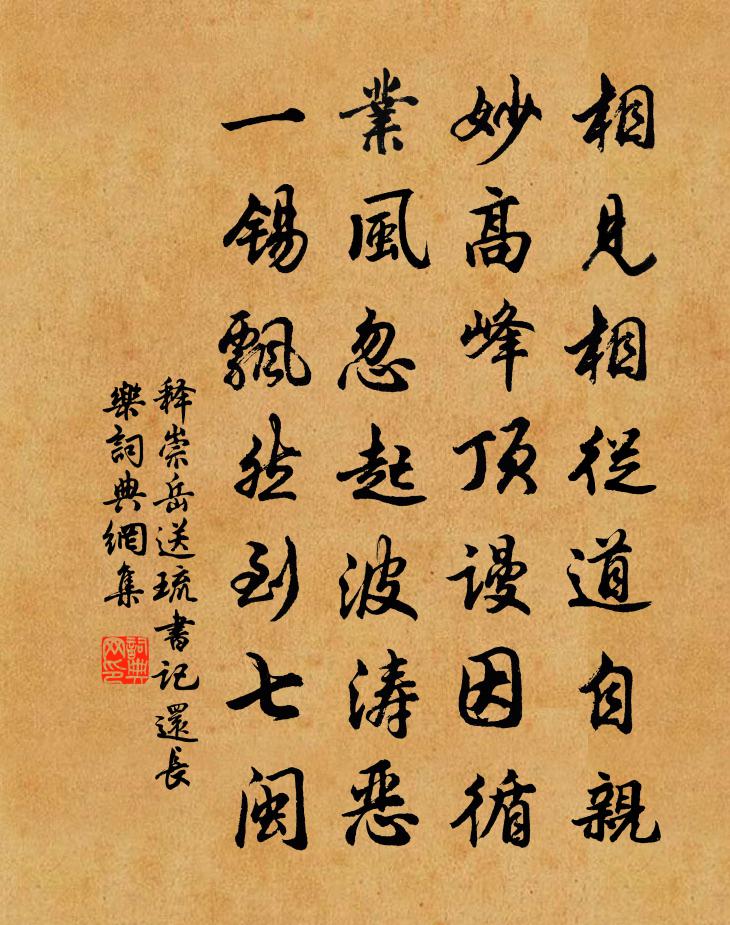 相見相從道自親
妙高峰頂謾因循
業風忽起波涛惡
一錫飄然到七闽
释崇岳送琉書记還長
樂詞典網集
詞典网印